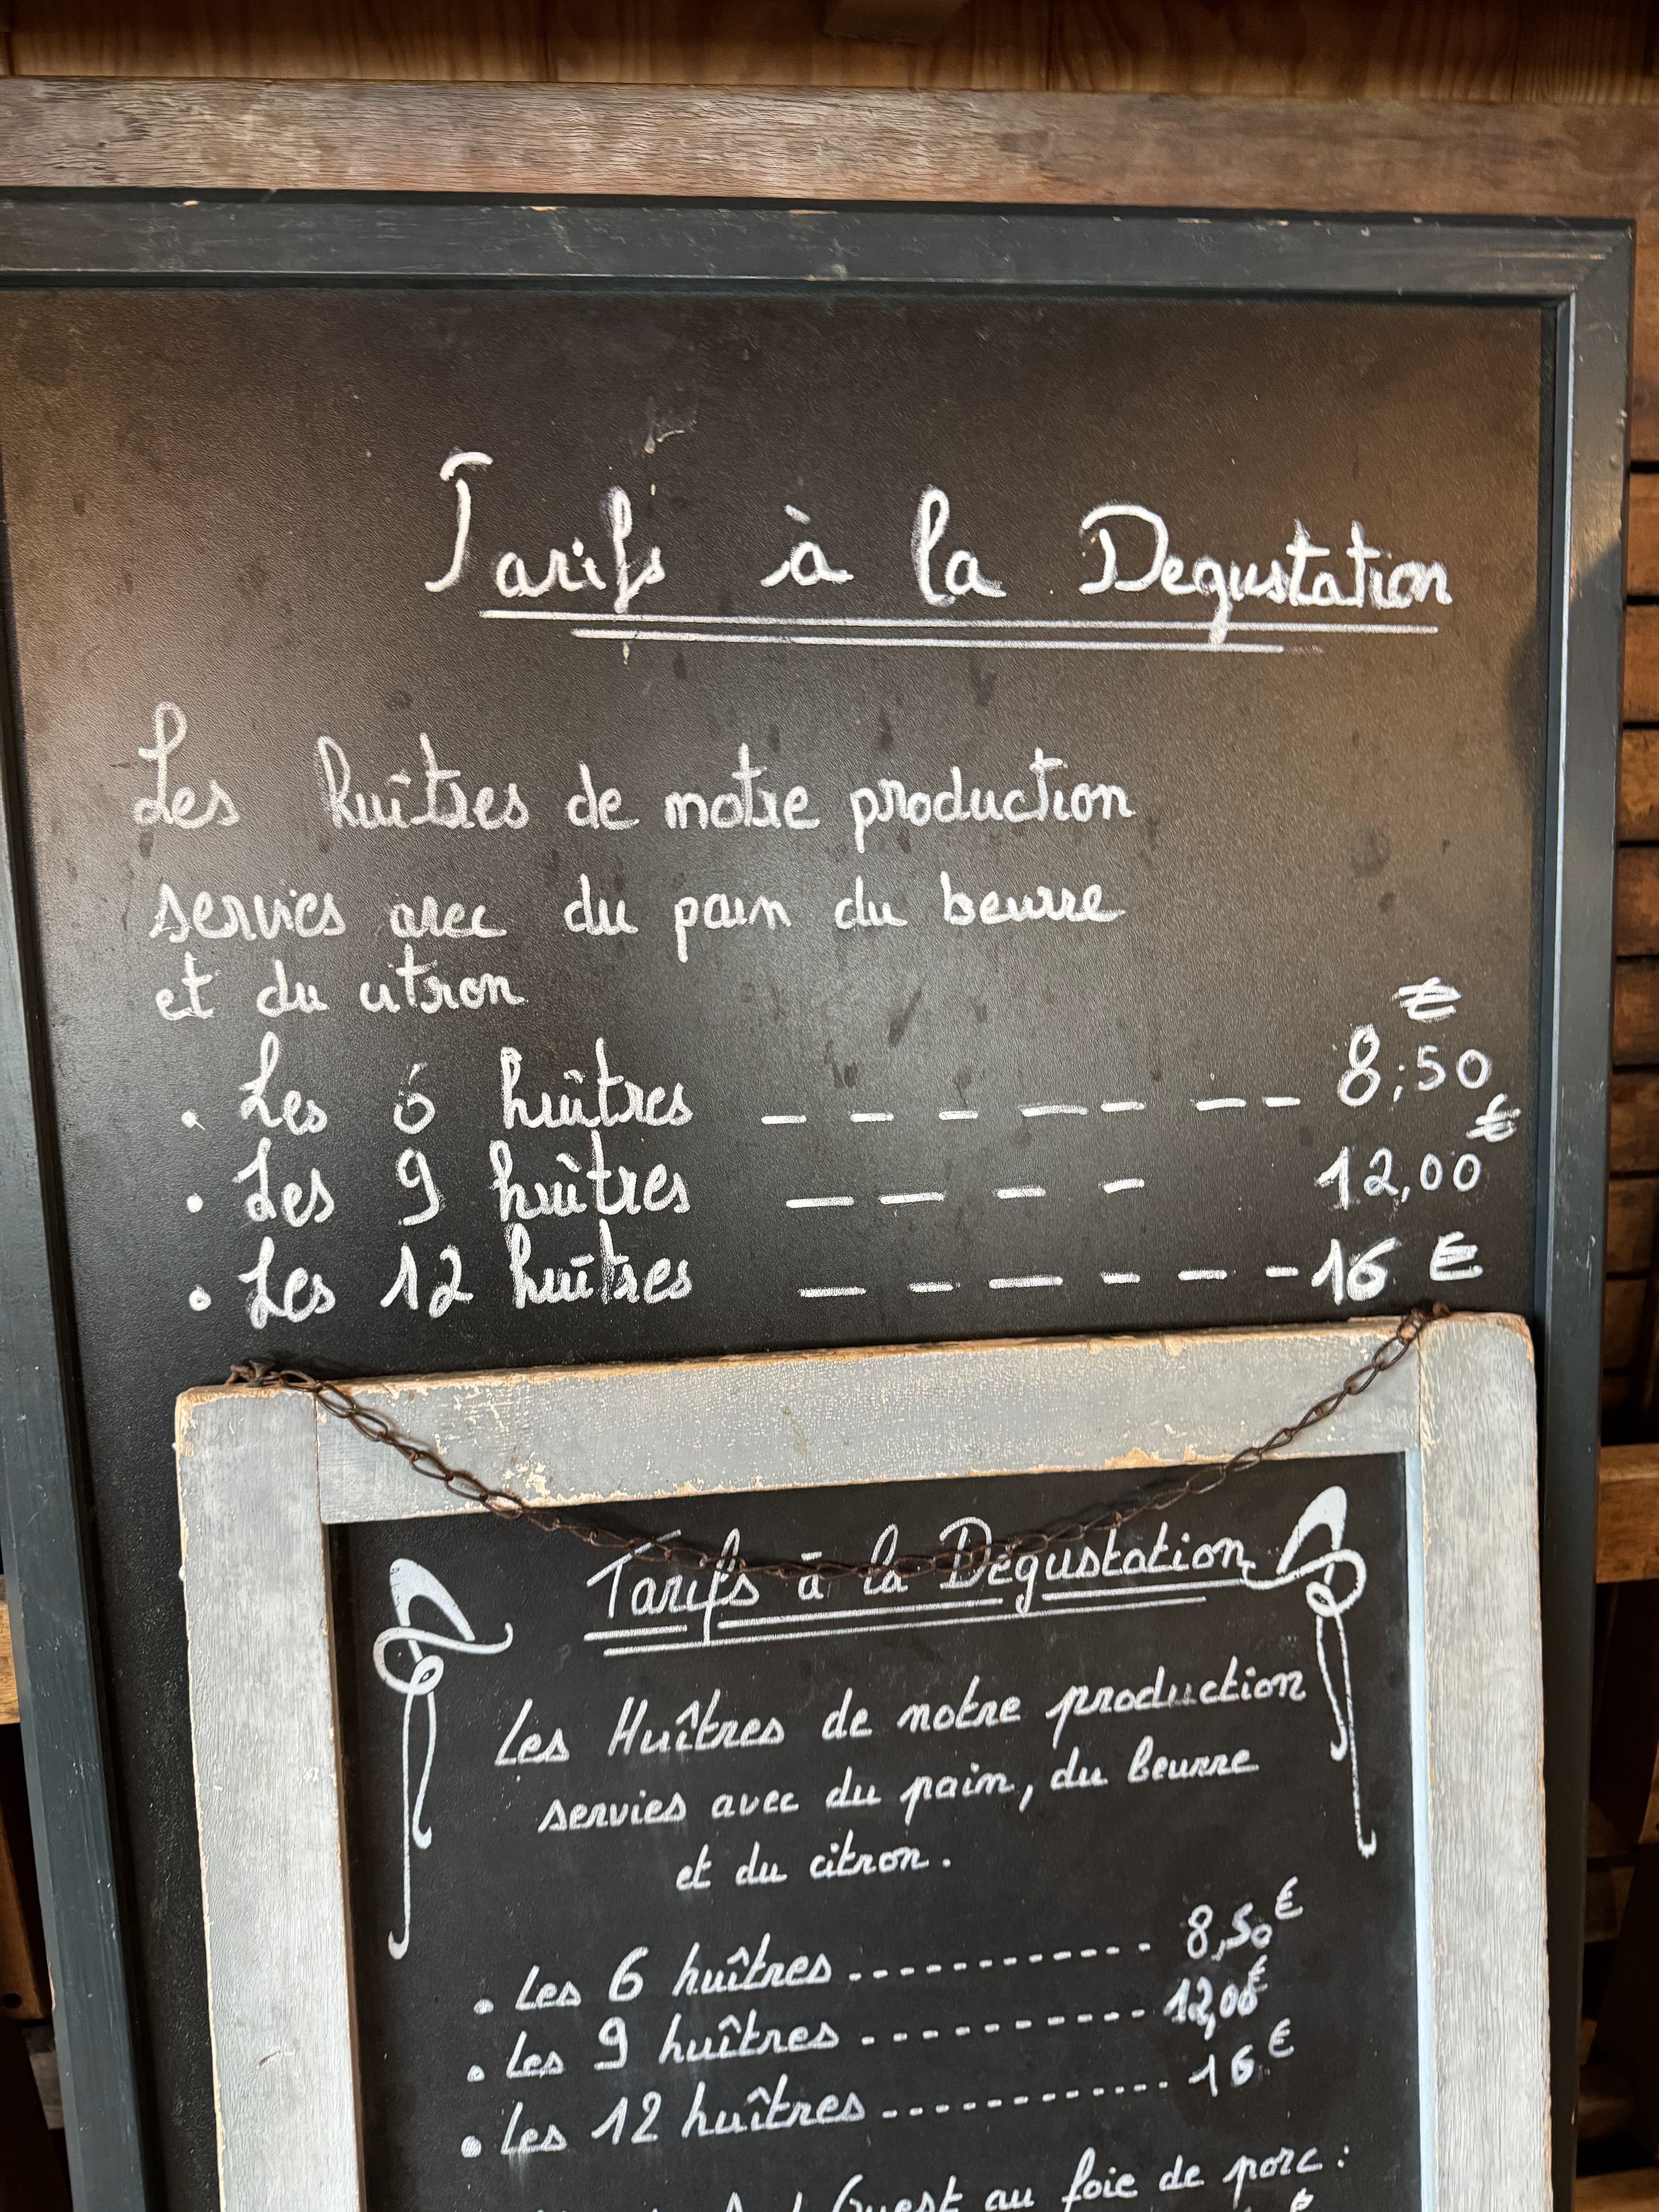 Tarifs à la Degustation
Les huîtres de notre production
servies avec du pain du beurre
et du citron
• Les 6 huîtres _ _ _ _ _ _ _ 8,50 €
• Les 9 huîtres _ _ _ _ 12,00 €
• Les 12 huîtres _ _ _ _ _ _ 16 €
Tarifs à la Dégustation
Les Huîtres de notre production
servies avec du pain, du beurre
et du citron.
• Les 6 huîtres ............ 8,50 €
• Les 9 huîtres ............ 12,00 €
• Les 12 huîtres ............ 16 €
au foie de porc :